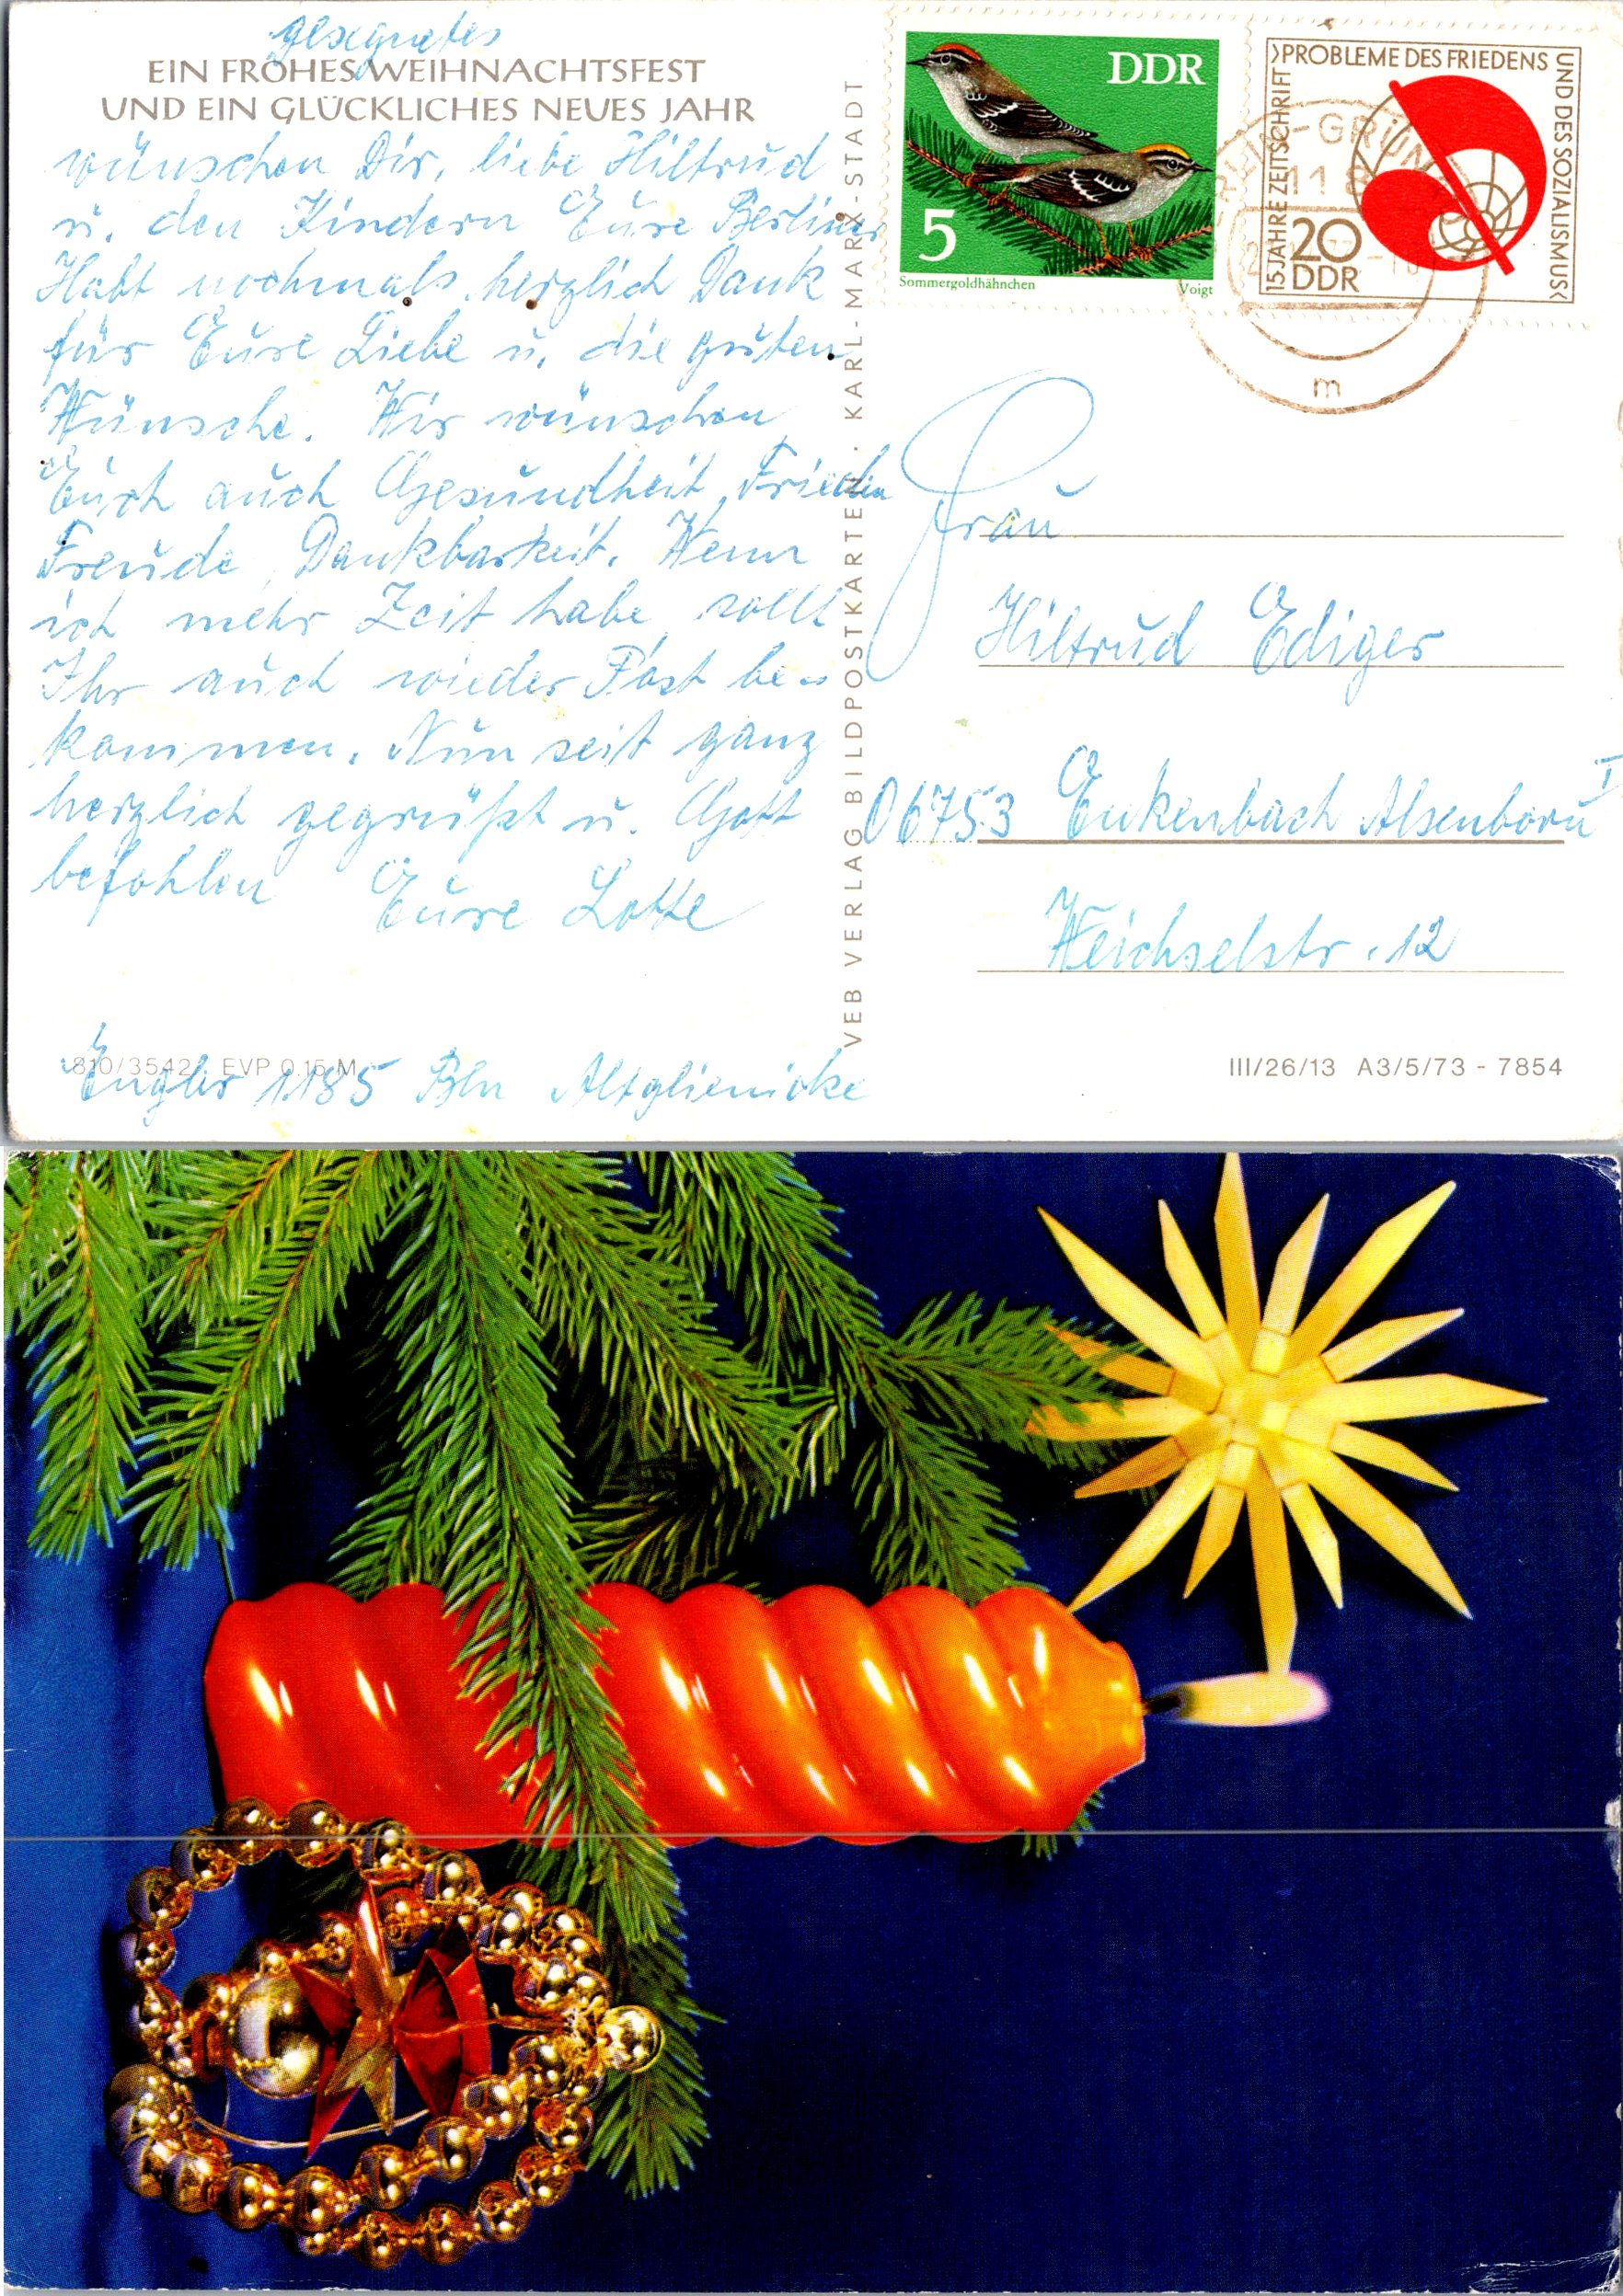 gesegnetes
EIN FROHES WEIHNACHTSFEST
UND EIN GLÜCKLICHES NEUES JAHR
wünschen Dir, liebe Hiltrud
u. den Kindern Eure Berliner
Habt nochmals herzlich Dank
für Eure Liebe u. die guten
Wünsche. Wir wünschen
Euch auch Gesundheit, Frieden
Freude, Dankbarkeit. Wenn
ich mehr Zeit habe sollt
Ihr auch wieder Post be-
kommen. Nun seit ganz
herzlich gegrüßt u. Gott
befohlen Eure Lotte
810/3542 EVP 0.15 M
Engler 1185 Bln Altglienicke
VEB VERLAG BILDPOSTKARTEN · KARL-MARX-STADT
DDR
5
Sommergoldhähnchen Voigt
15 JAHRE ZEITSCHRIFT
›PROBLEME DES FRIEDENS
UND DES SOZIALISMUS‹
20
DDR
118
m
Frau
Hiltrud Ediger
06753 Enkenbach Alsenborn I
Weichselstr. 12
III/26/13 A3/5/73 - 7854